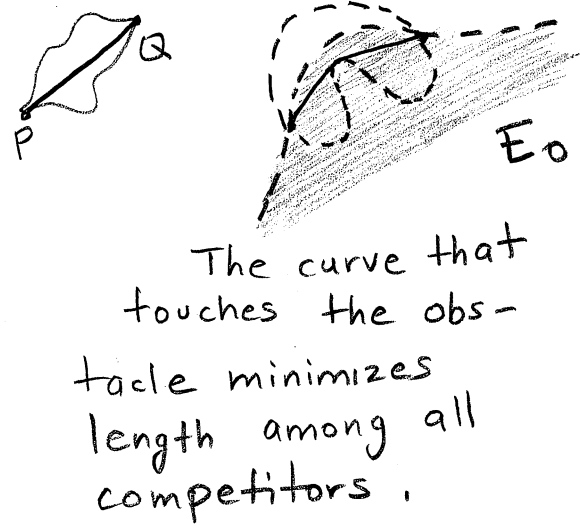 Q
P
E₀
The curve that
touches the obs-
tacle minimizes
length among all
competitors.